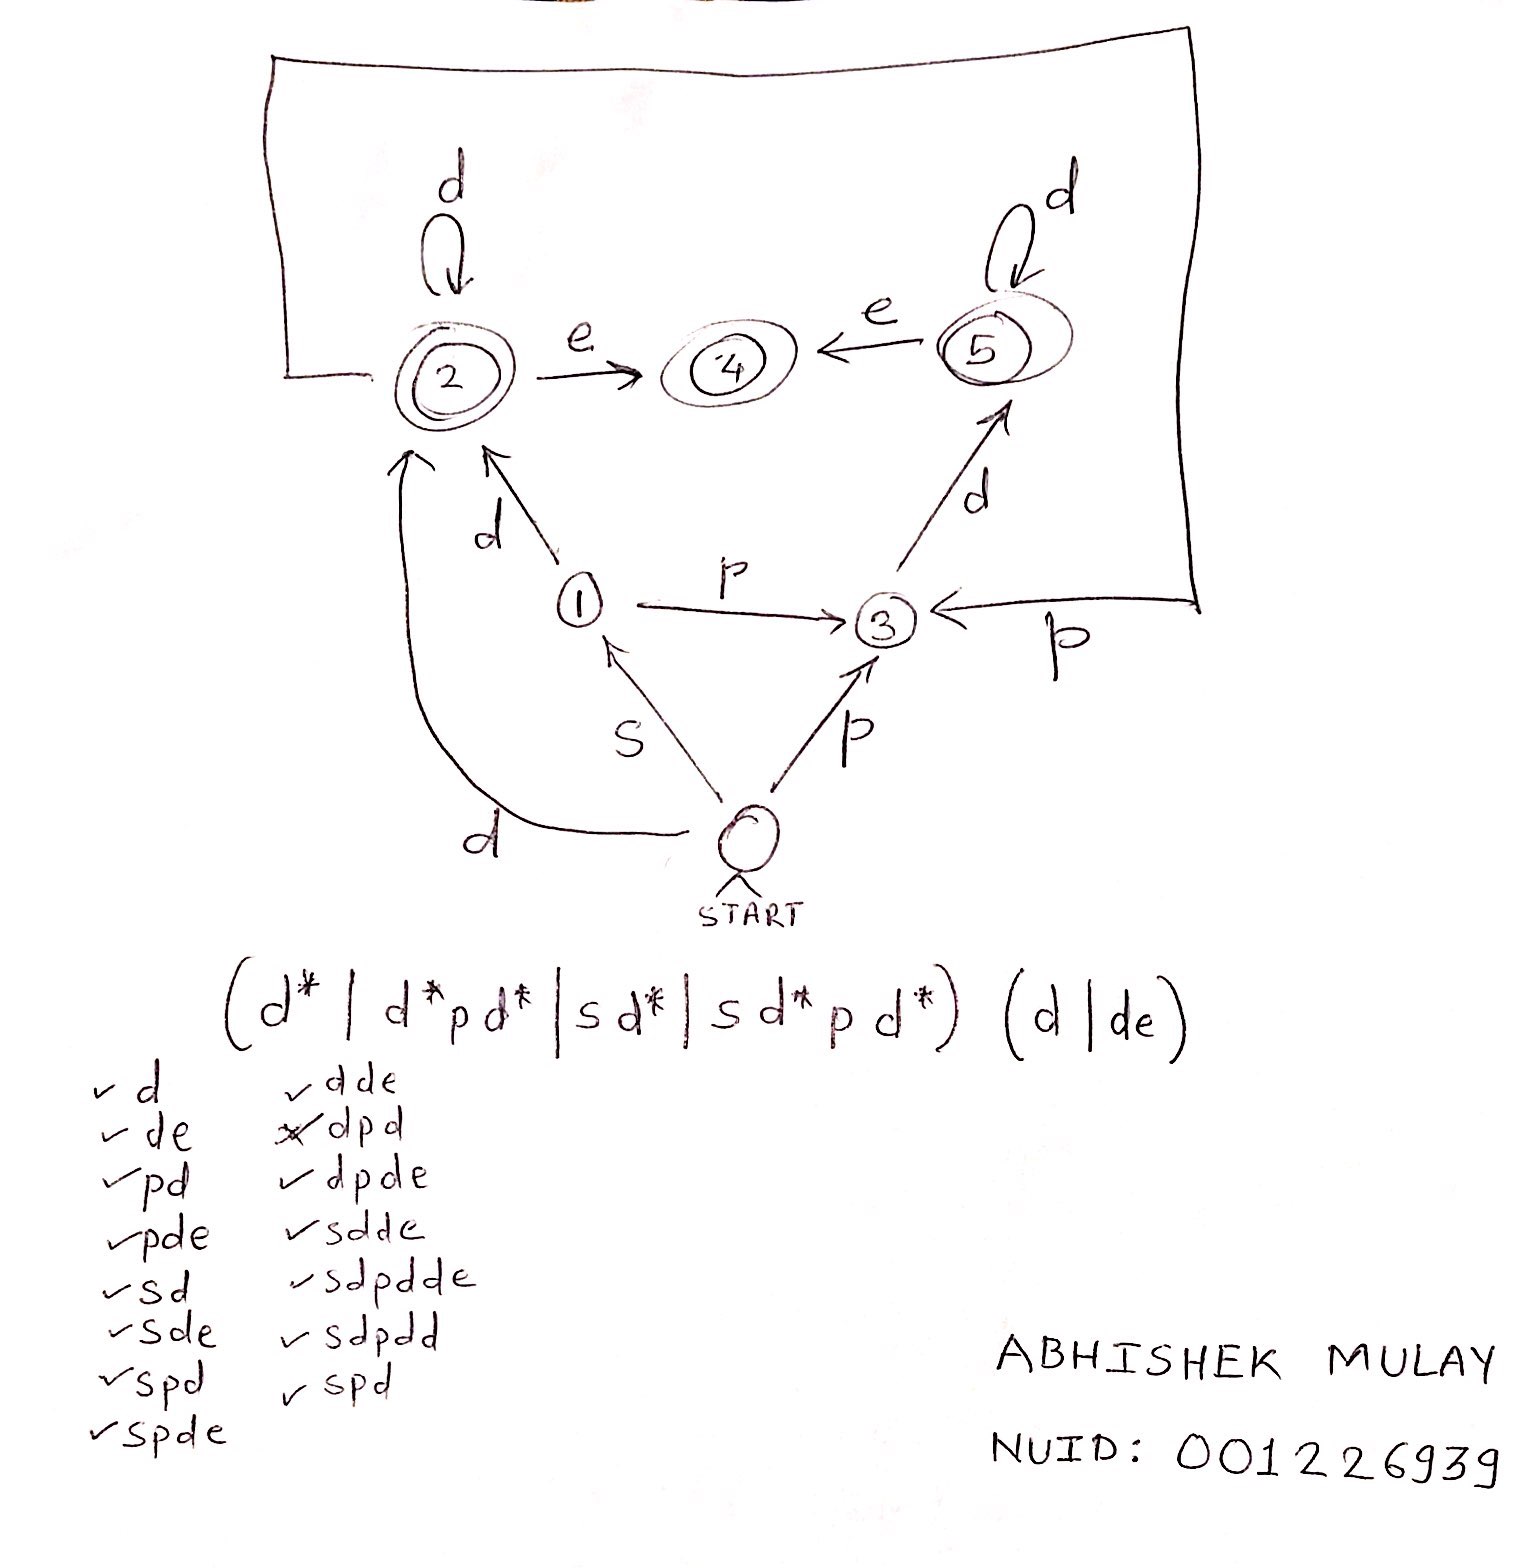 d
d
e
e
2
4
5
d
d
p
1
3
p
s
p
d
START
(d* | d*pd* | sd* | sd*pd*) (d | de)
✓ d
✓ de
✓ pd
✓ pde
✓ sd
✓ sde
✓ spd
✓ spde
✓ dde
✓ dpd
✓ dpde
✓ sdde
✓ sdpdde
✓ sdpdd
✓ spd
ABHISHEK MULAY
NUID: 001226939